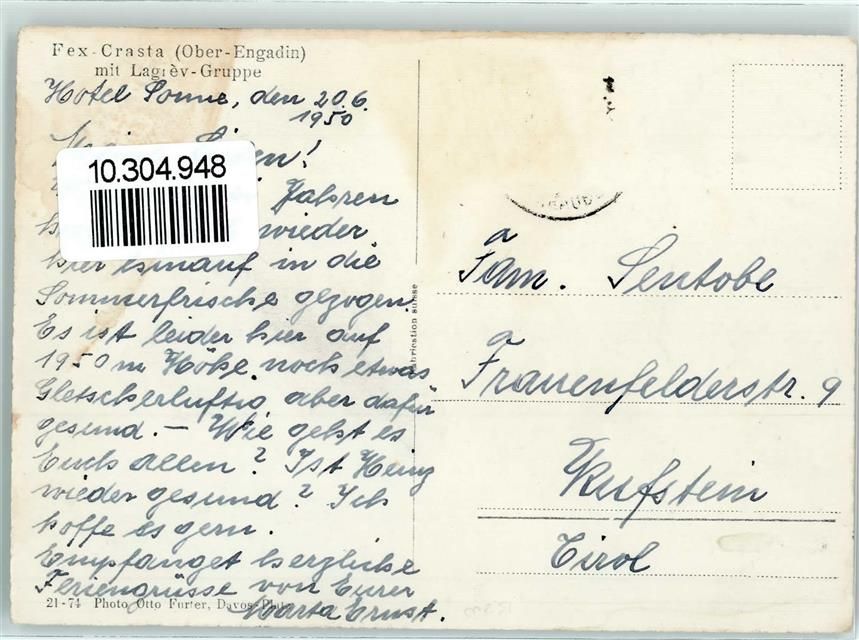 Fex-Crasta (Ober-Engadin)
mit Lagrèv-Gruppe
Hotel Sonne, den 20.6.
1950
10.304.948
Jahren
wieder
hier hinauf in die
Sommerfrische gezogen.
Es ist leider hier auf
1950 m Höhe noch etwas
Gletscherluftig aber dafür
gesund. — Wie geht es
Euch allen? Ist Heinz
wieder gesund? Ich
hoffe es gern.
Empfanget herzliche
Feriengrüsse von Eurer
Marta Ernst.
21-74 Photo Otto Furter, Davos-Platz
Fabrication suisse
Fam. Sentobe
Frauenfelderstr. 9
Kufstein
Tirol